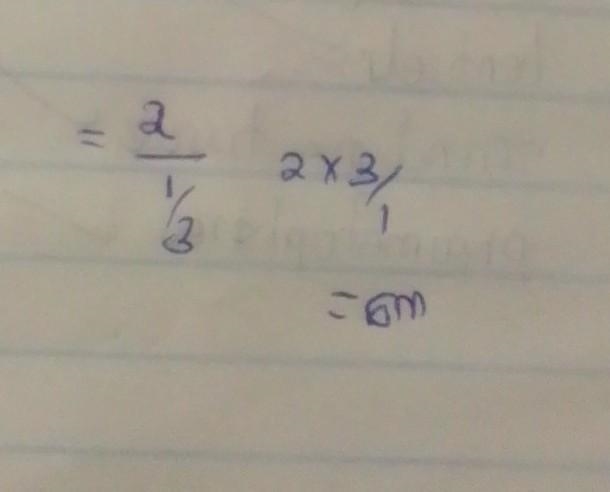 = 2 / 1/3 2 × 3/1
= 6m